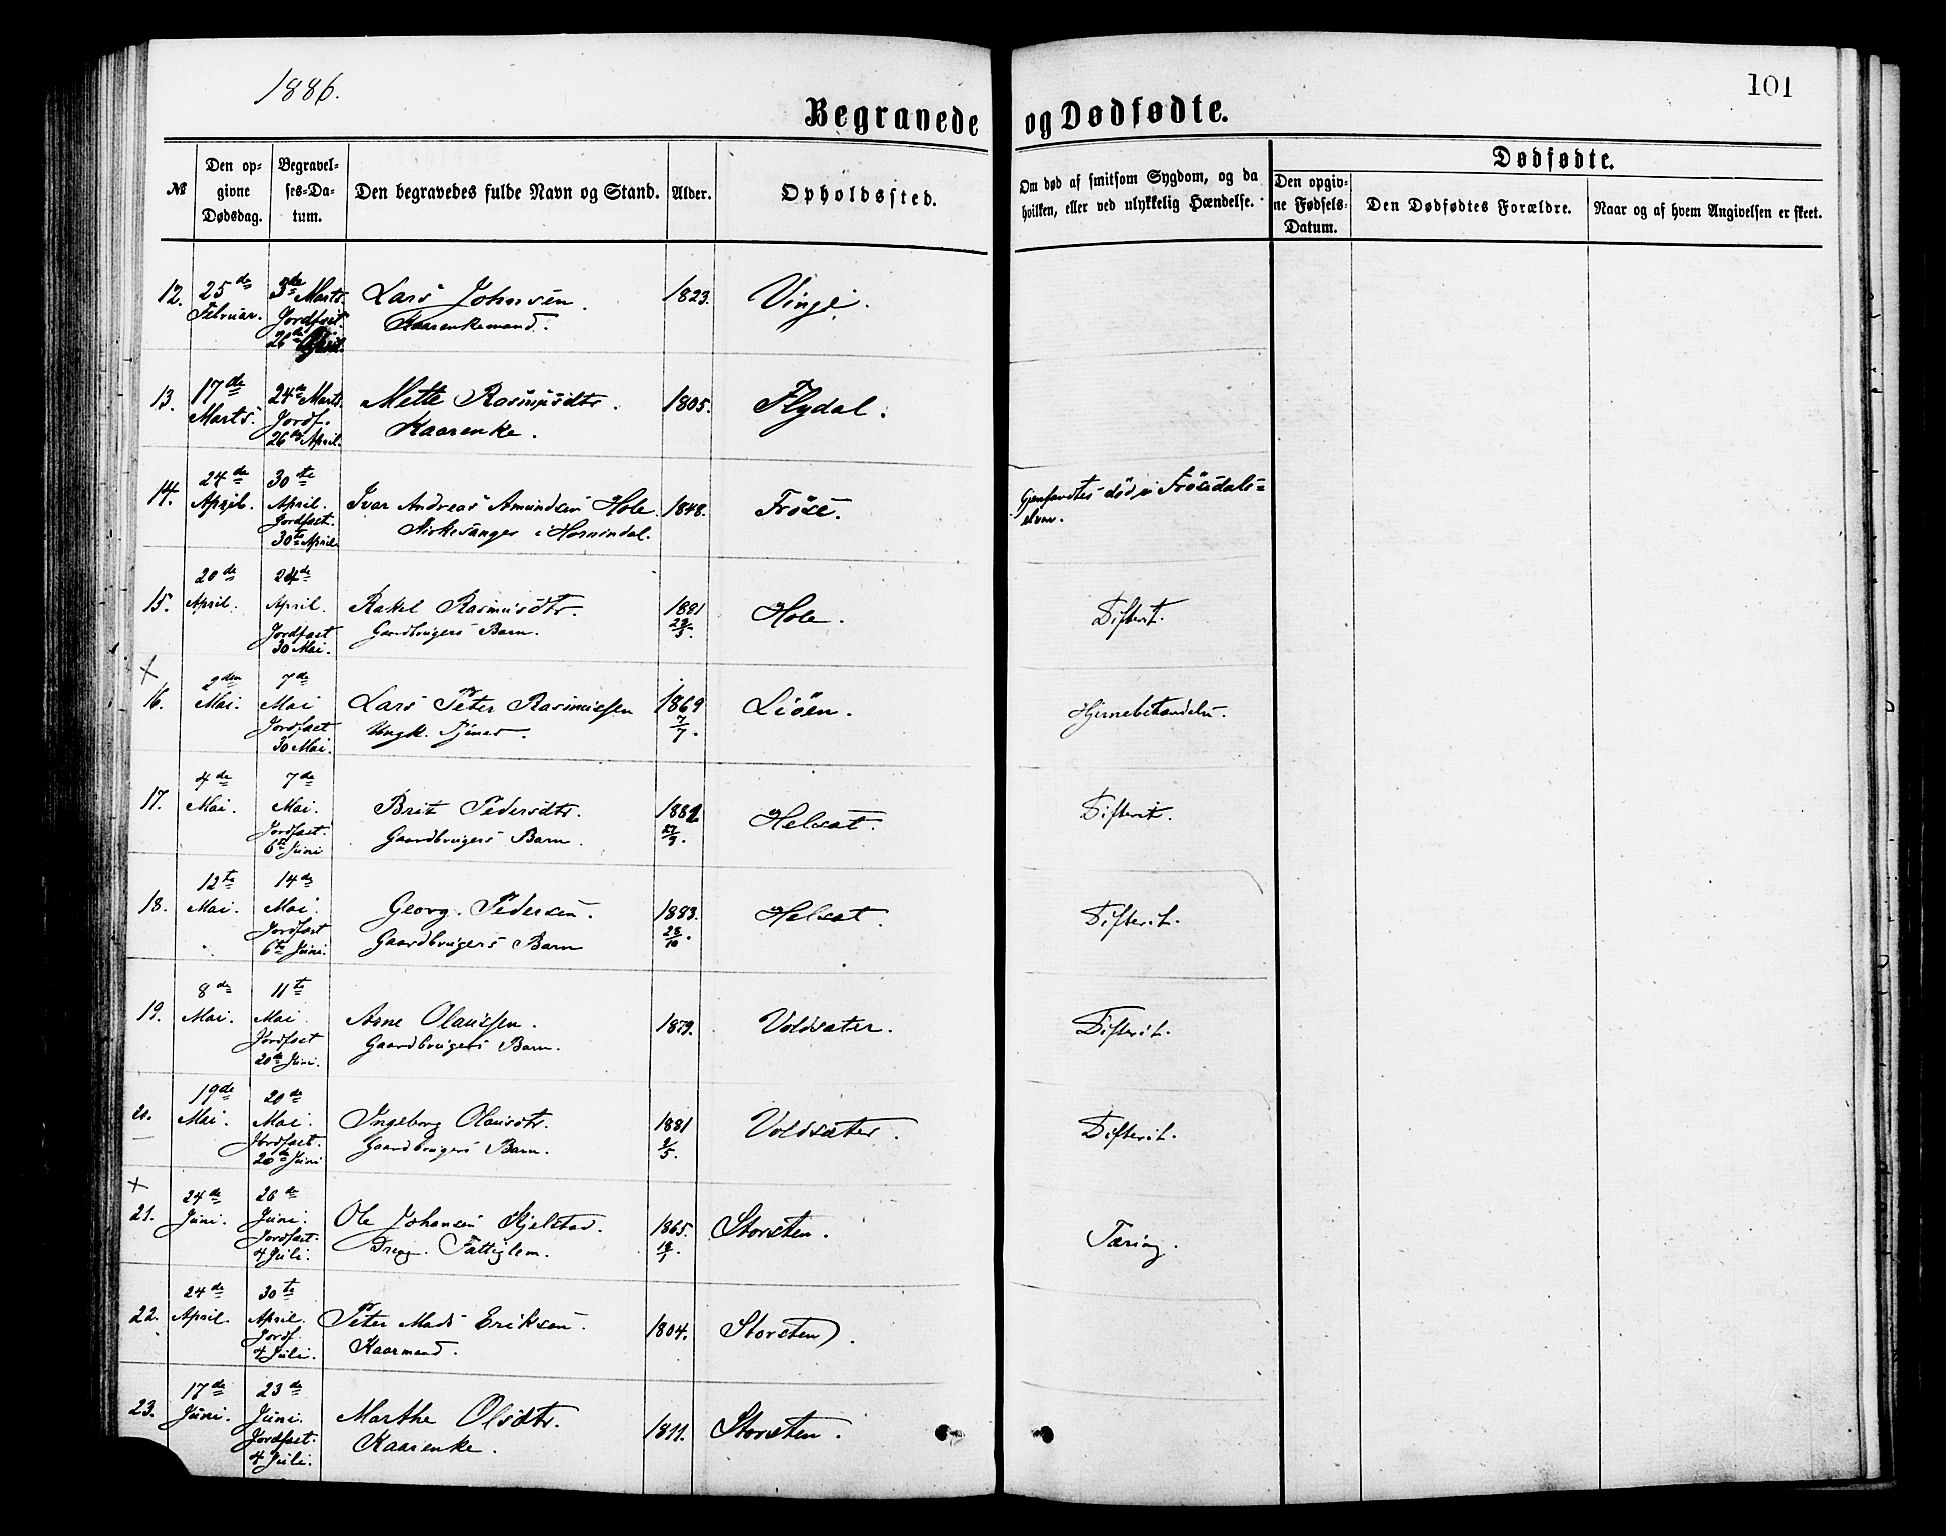 1886.
101
Begravede og Dødfødte.
№
Den opgivne Dødsdag.
Begravelses-Datum.
Den begravedes fulde Navn og Stand.
Alder.
Opholdssted.
Om død af smitsom Sygdom, og da hvilken, eller ved ulykkelig Hændelse.
Dødfødte.
Den opgivne Fødsels-Datum.
Den Dødfødtes Forældre.
Naar og af hvem Angivelsen er skeet.
12. 25de Februar. 3de Marts. Jordfæst. 26de April. Lars Johnsen. Kaarenkemand. 1823. Vinje.
13. 17de Marts. 24de Marts. Jordf. 26de April. Mette Rasmusdtr. Kaarenke. 1805. Flydal.
14. 24de April. 30te April. Jordfæst. 30te April. Ivar Andreas Amundsen Hole. Kirkesanger i Hornindal. 1848. Frøse. Gjenfandtes død i Frøisdalselven.
15. 20de April. 24de April. Jordfæst 30 Mai. Rakel Rasmusdtr. Gaardbrugers Barn. 1881 Hole. Difterit.
16. 2den Mai. 7de Mai Jordfæst 30 Mai. Lars Peter Rasmussen Ungk. Tjener. 1869 7/7. Liøen. Hjernebetændelse.
17. 4de Mai. 7de Mai. Jordfæst. 6te Juni Brit Pedersdtr. Gaardbrugers Barn. 1882 Helsæt. Difterit.
18. 12te Mai. 14de Mai. Jordfæst 6te Juni. Georg Pedersen. Gaardbrugers Barn 1883. 28/10. Helsæt. Difterit.
19. 8de Mai. 11te Mai. Jordfæst 20de Juni. Arne Olausen. Gaardbrugers Barn. 1879. Voldsæter. Difterit.
20. 19de Mai. 20de Mai. Jordfæst. 20de Juni Ingeborg Olausdtr. Gaardbrugers Barn. 1881 Voldsæter. Difterit.
21. 24de Juni. 26de Juni. Jordfæst. 4 Juli. Ole Johansen Kjelstad. Dreng. Fattiglem. 1865. Storsten. Tæring.
22. 24de April. 30te April. Jordf. 4 Juli. Peter Mads Eriksen. Kaarmand. 1804. Storsten.
23. 17de Juni. 23de Juni. Jordfæst. 4 Juli. Marthe Olsdtr. Kaarenke. 1811. Storsten.